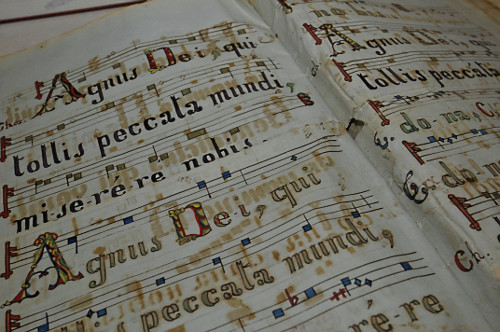 Agnus Dei, qui
tollis peccata mundi,
mi-se-ré-re nobis.
Agnus Dei, qui
gnus peccata mundi,
ré-re
Agnus Dei,
tollis peccáta
do-na,
do